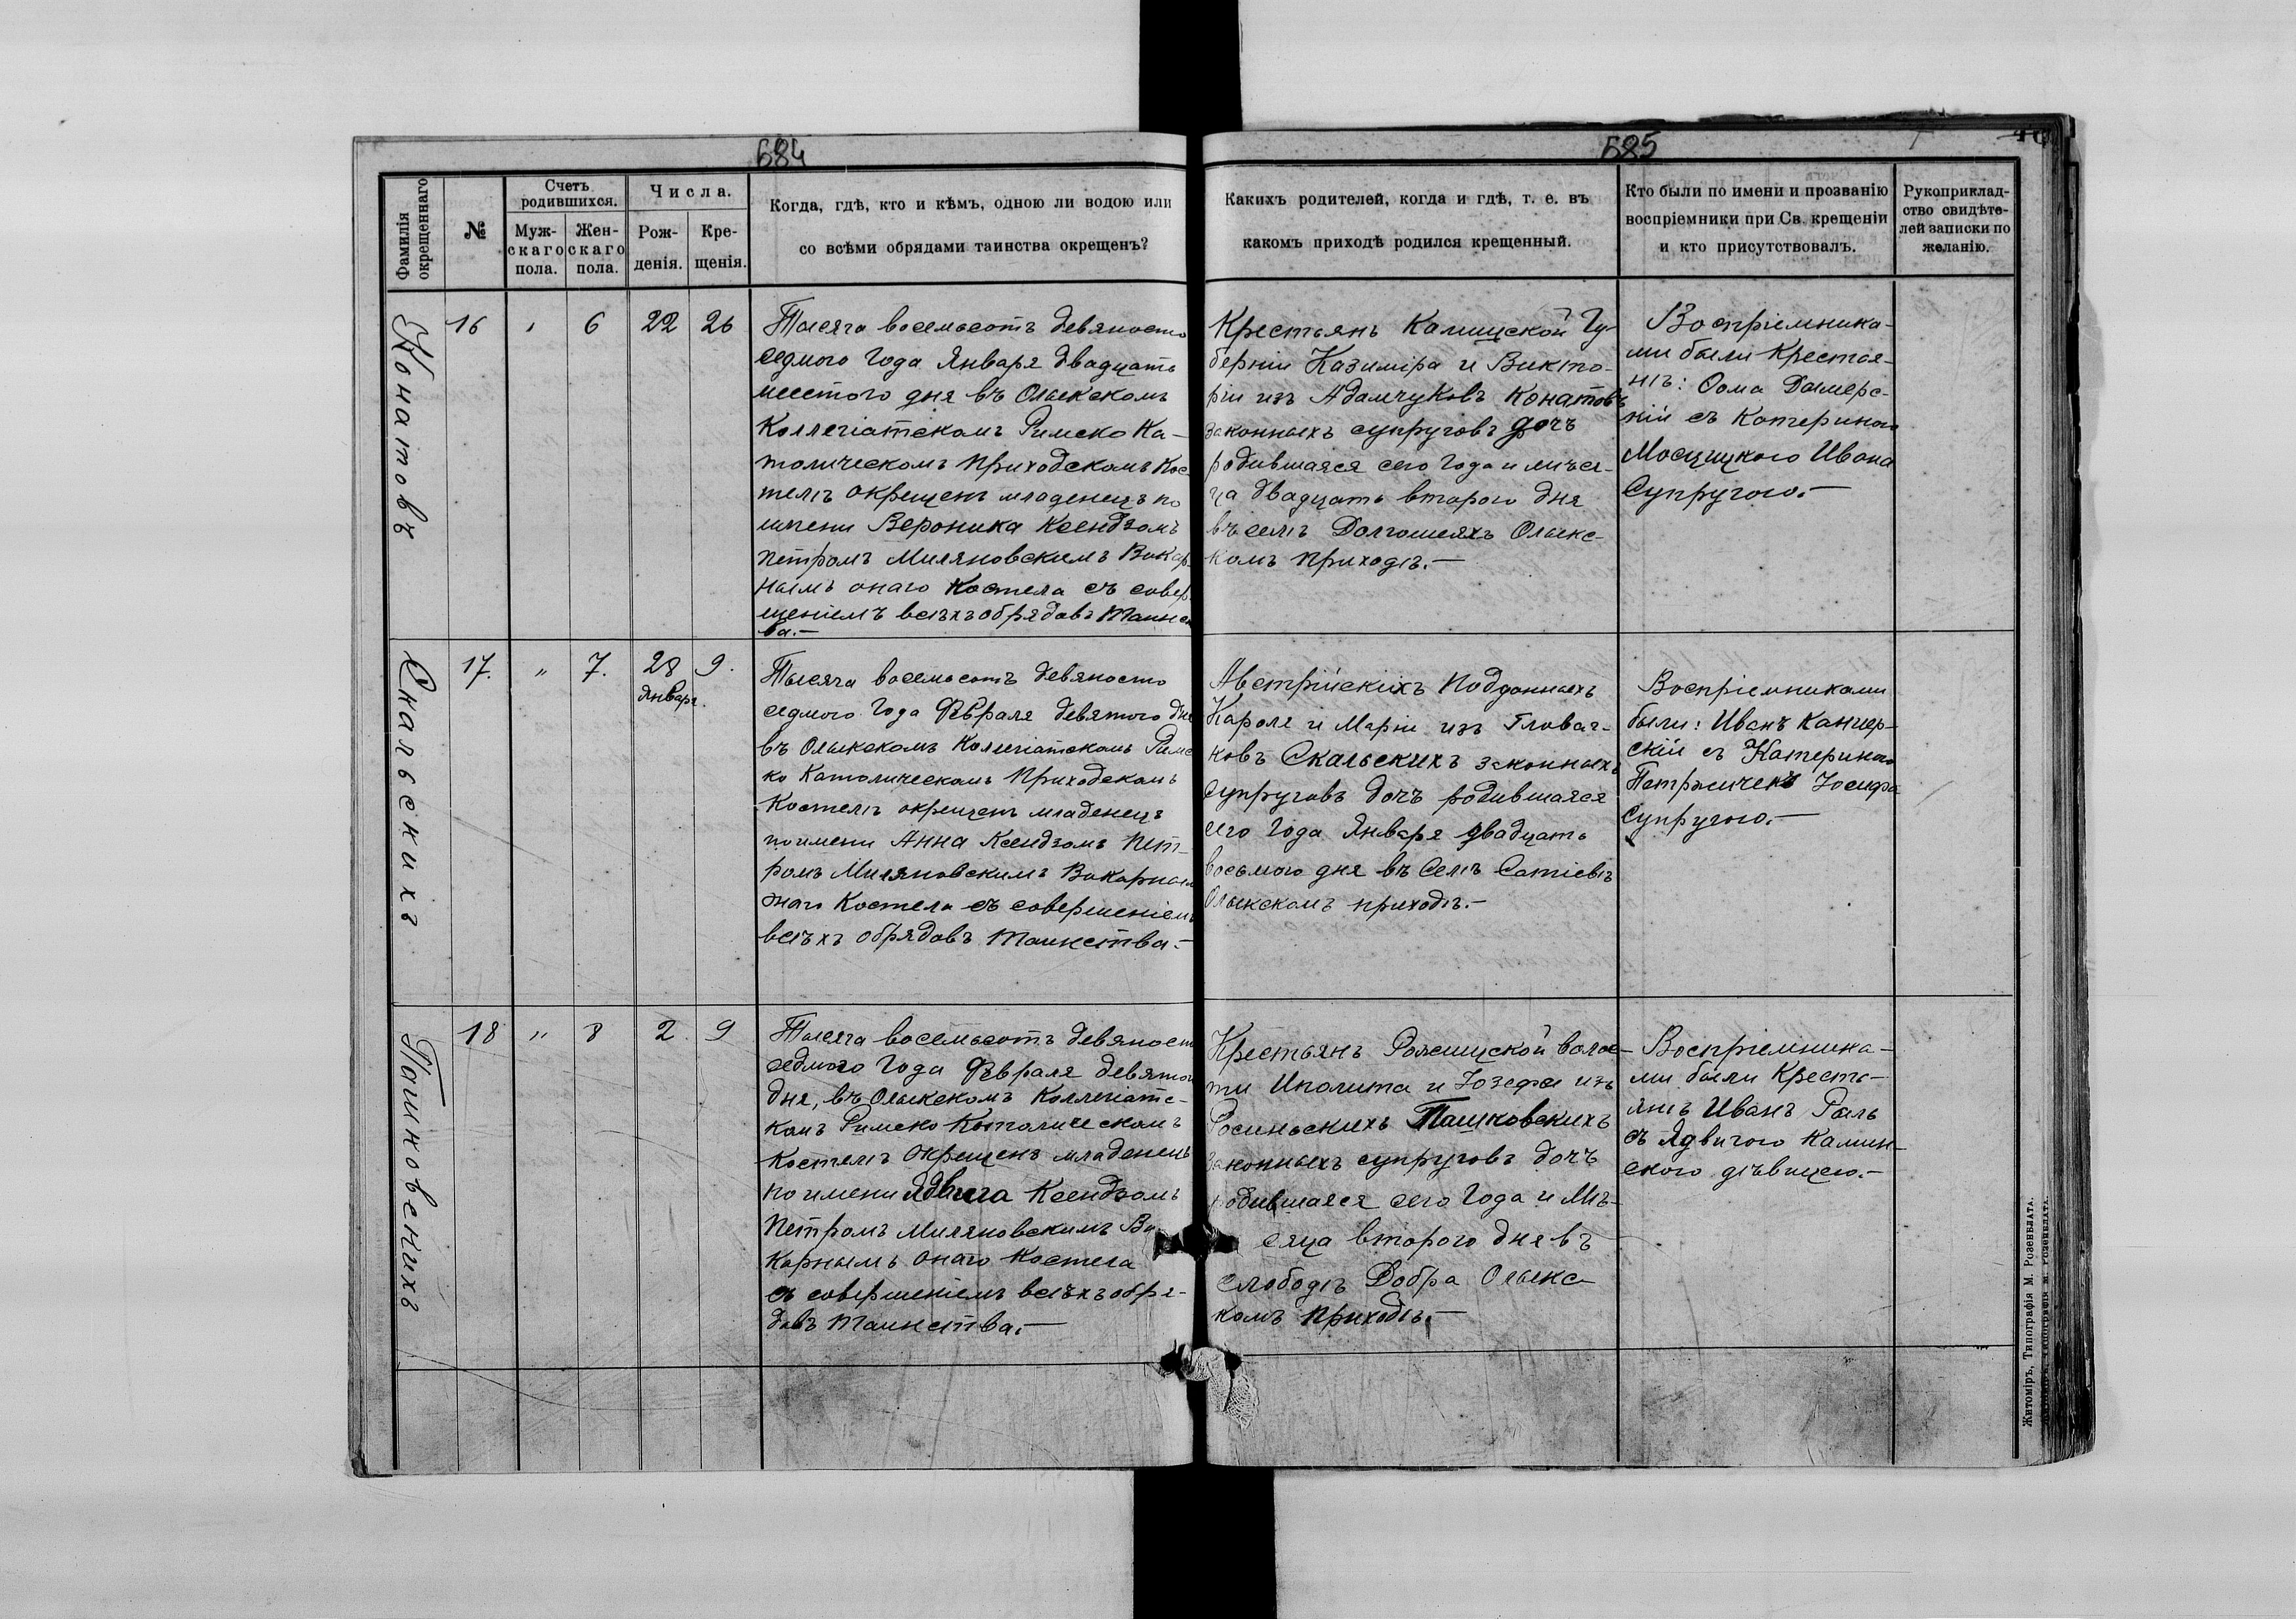 684
Фамилія
окрещеннаго
№
Счетъ
родившихся.
Муж-
скаго
пола.
Жен-
скаго
пола.
Числа.
Рож-
денія.
Кре-
щенія.
Когда, гдѣ, кто и кѣмъ, одною ли водою или
со всѣми обрядами таинства окрещенъ?
685
Какихъ родителей, когда и гдѣ, т. е. въ
какомъ приходѣ родился крещенный.
Кто были по имени и прозванію
воспріемники при Св. крещеніи
и кто присутствовалъ.
Рукоприклад-
ство свидѣте-
лей записки по
желанію.
Конатовъ
16 " 6 22 26
Тысяча восемьсотъ девяносто
седмого Года Января двадцать
шестого дня въ Олыкскомъ
Коллегіатскомъ Римско Ка-
толическомъ приходскомъ Кос
телѣ окрещенъ младенецъ по
имени Вероника Ксендзомъ
Петромъ Миляновскимъ Викар
нымъ онаго Костела съ совер
шеніемъ всѣхъ обрядовъ Таинст
ва.—
Крестьянъ Калишской Гу-
берніи Казиміра и Викто-
ріи изъ Адамчуковъ Конатовъ
законныхъ супруговъ дочъ
родившаяся сего Года и мѣся-
ца двадцать второго дня
въ селѣ Долгошеяхъ Олыкс-
комъ приходѣ.—
Воспріемника-
ми были Крестья-
нѣ: Ѳома Домерс-
кій съ Катериною
Мосцицкого Ивана
Супругою.—
Скальскихъ
17. " 7. 28 9.
Января.
Тысяча восемьсотъ девяносто
седмого Года Февраля девятого дня
въ Олыкскомъ Колегіатскомъ Римс
ко Католическомъ Приходскомъ
Костелѣ окрещенъ младенецъ
по имени Анна Ксендзомъ Пет-
ромъ Миляновскимъ Викарным
онаго Костела съ совершеніемъ
всѣхъ обрядовъ Таинства.—
Австрійскихъ Подданныхъ
Кароля и Маріи изъ Гловач-
ковъ Скальскихъ законныхъ
супруговъ дочъ родившаяся
сего Года Января двадцать
восьмого дня въ Селѣ Сатіевѣ
Олыкскомъ приходѣ.—
Воспріемниками
были: Иванъ Канцер-
скій съ Катериною
Іосифа
Супругою.—
Пашковскихъ
18 " 8 2. 9
Тысяча восемьсотъ девяносто
седмого Года Февраля девятого
дня, въ Олыкскомъ Коллегіатс-
комъ Римско Католическомъ
Костелѣ окрещенъ младенецъ
по имени Ядвига Ксендзомъ
Петромъ Миляновскимъ Ви-
карнымъ онаго Костела
съ совершеніемъ всѣхъ обря-
довъ Таинства.—
Крестьянъ Рожищской волос-
ти Иполита и Іозефы изъ
Росиньскихъ Пашковскихъ
законныхъ супруговъ дочъ
родившаяся сего Года и Мѣ-
сяца второго дня въ
слободѣ Добра Олыкс-
комъ приходѣ.—
Воспріемника-
ми были Кресть-
янѣ Иванъ Раль
съ Ядвигою Камин-
ского дѣвицею.—
Житоміръ, Типографія М. Розенблата.